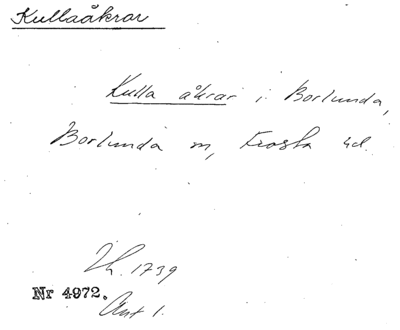 Kullaåkrar
Kulla åkrar i Borlunda,
Borlunda m, Frosta hd.
Lh. 1739
Nr 4972.
Akt 1.